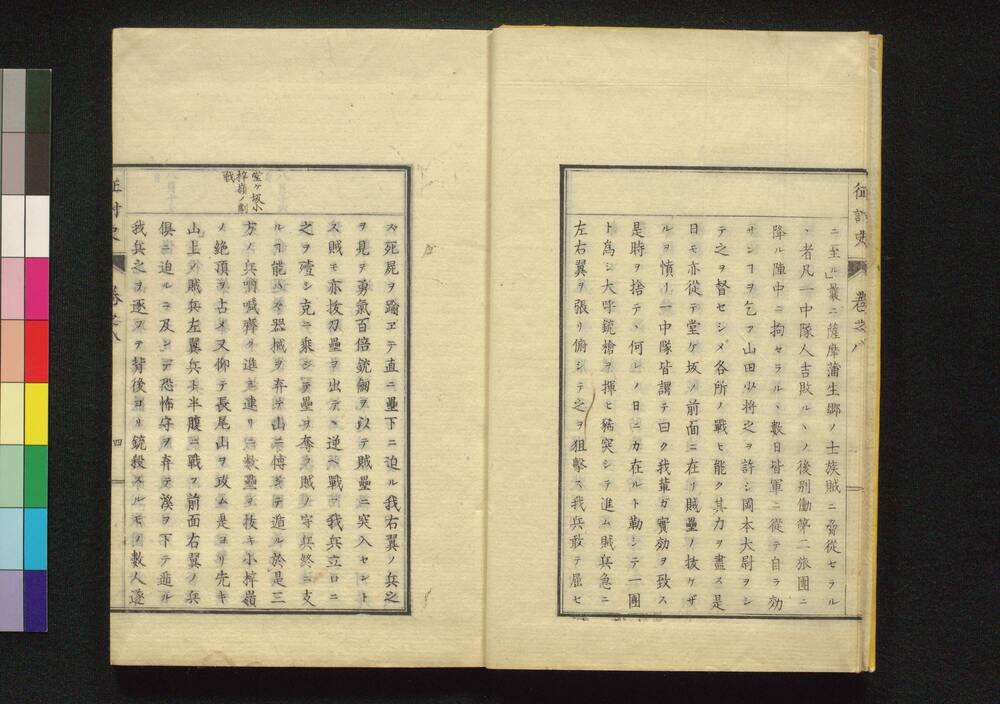 征討史 巻之八
ニ至ル」曩ニ薩摩蒲生郷ノ士族賊ニ脅從セラル
ヽ者凡一中隊人吉敗ルヽノ後别働第二旅團ニ
降ル陣中ニ拘セラルヽ數日皆軍ニ從テ自ラ効
サンヿヲ乞フ山田少将之ヲ許シ岡本大尉ヲシ
テ之ヲ督セシメ各所ノ戰ヒ能ク其力ヲ盡ス是
日モ亦從テ堂ケ坂ノ前面ニ在リ賊壘ノ抜ケザ
ルヲ憤リ一中隊皆謂テ曰ク我輩ガ實効ヲ致ス
是時ヲ捨テヽ何レノ日ニカ在ルト勒シテ一團
ト為シ大呼銃槍ヲ揮ヒ猪突シテ進ム賊兵急ニ
左右翼ヲ張リ俯シテ之ヲ狙擊ス我兵敢テ屈セ
堂ケ坂小
梓嶺ノ劇
戰
ズ死屍ヲ踰ヱテ直ニ壘下ニ迫ル我右翼ノ兵之
ヲ見ヲ勇氣百倍銃劔ヲ以テ賊壘ニ突入セント
ス賊モ亦抜刀壘ヲ出テヽ逆ヘ戰フ我兵立ロニ
之ヲ殪シ克ニ乘シテ壘ヲ奪フ賊ノ守兵終ニ支
ルヿ能ハズ器械ヲ弃テ山ニ傳シテ遁ル於是三
方ノ兵吶喊齊ク進ミ連リニ數壘ヲ抜キ小梓嶺
ノ絶頂ヲ占メ又仰テ長尾山ヲ攻ム是ヨリ先キ
山上ノ賊兵左翼兵ト半腹ニ戰フ前面右翼ノ兵
俱ニ迫ルニ及ンデ恐怖守ヲ弃テ溪ヲ下テ遁ル
我兵之ヲ逐フテ背後ヨリ銃殺スルモノ數人遂
征討史 巻之八 四